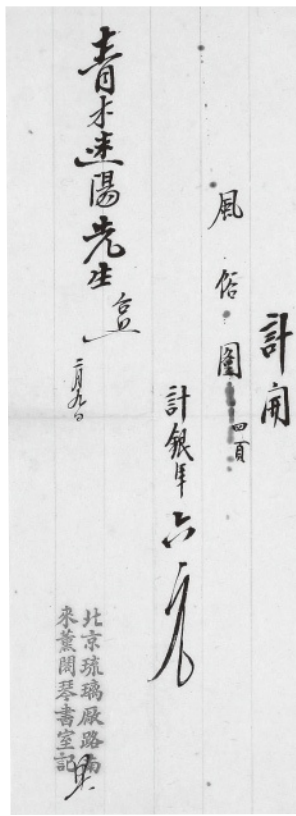 計開
風俗圖 四頁
計銀洋六元
青木迷陽先生 台照
二月九日
北京琉璃厰路南
來薰閣琴書室記